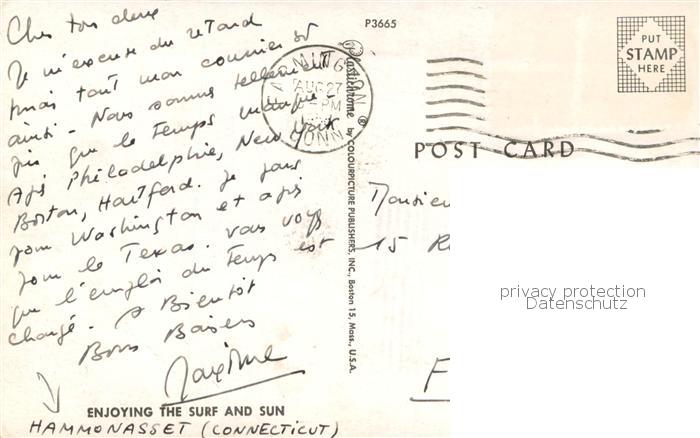 Chers tous deux
Je m'excuse du retard
mais tout mon courrier est
ainsi - Nous sommes tellement
pris que le temps manque.
Après Philadelphie, New York
Boston, Hartford. je pars
pour Washington et après
pour le Texas. vous voyez
que l'emploi du temps est
chargé. A Bientôt
Bons Baisers
Maxime
ENJOYING THE SURF AND SUN
HAMMONASSET (CONNECTICUT)
P3665
AUG 27
PM
CONN
Plastichrome ® by COLOURPICTURE PUBLISHERS, INC., Boston 15, Mass., U.S.A.
PUT
STAMP
HERE
POST CARD
Monsieur
15 R
F
privacy protection
Datenschutz